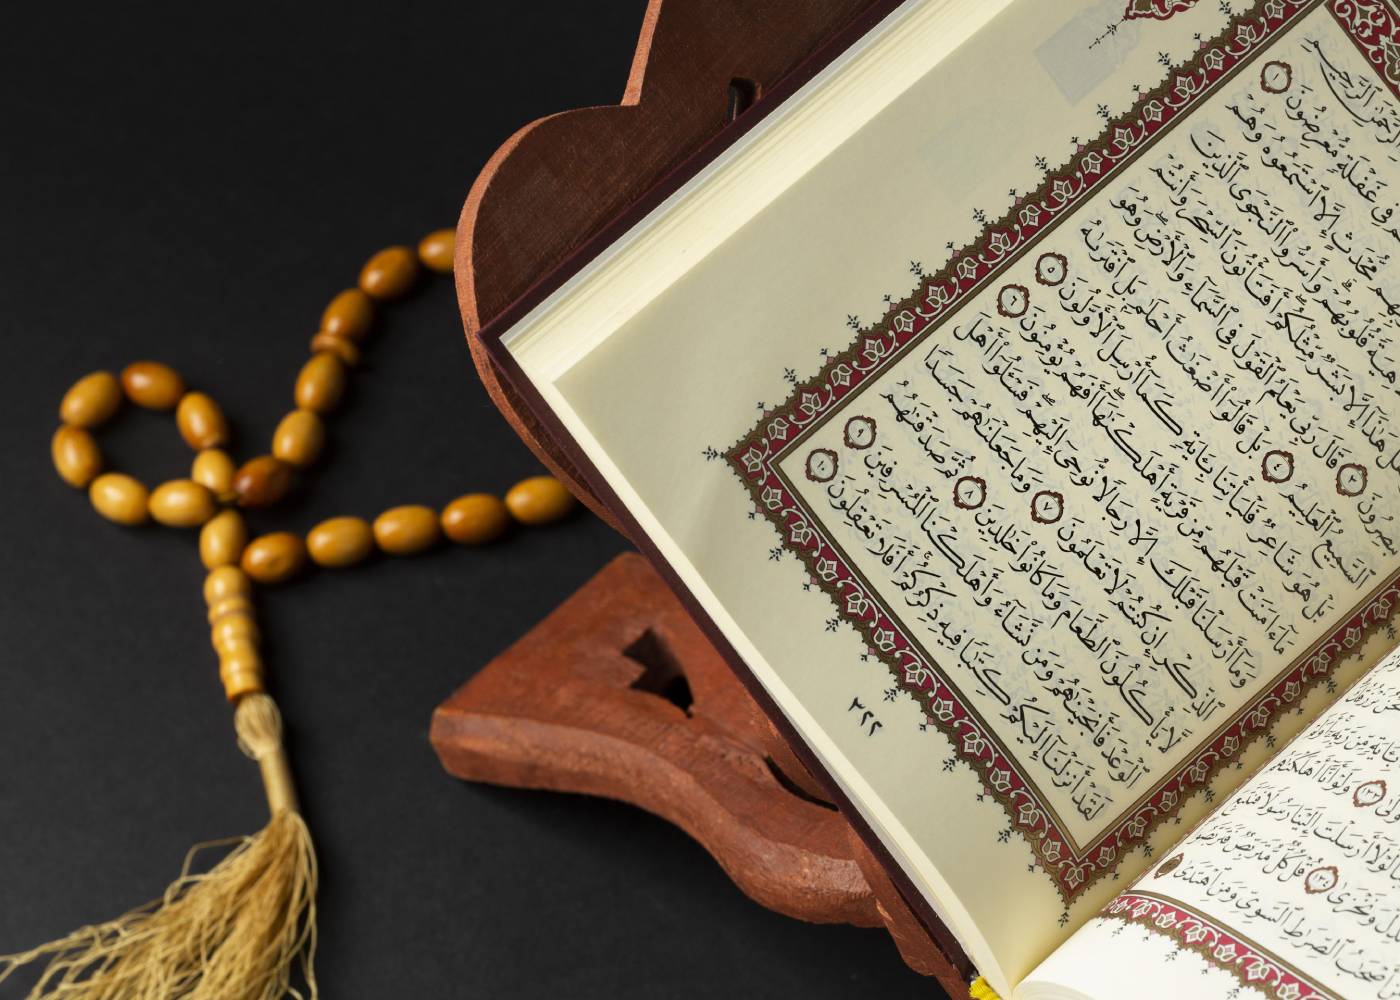 ٱلرَّحِيمِ
فِى غَفْلَةٍ مُّعْرِضُونَ ١
مُّحْدَثٍ إِلَّا ٱسْتَمَعُوهُ وَهُمْ
لَاهِيَةً قُلُوبُهُمْ وَأَسَرُّوا۟ ٱلنَّجْوَى ٱلَّذِينَ
هَلْ هَٰذَآ إِلَّا بَشَرٌ مِّثْلُكُمْ أَفَتَأْتُونَ ٱلسِّحْرَ وَأَنتُمْ
تُبْصِرُونَ ٣ قَالَ رَبِّى يَعْلَمُ ٱلْقَوْلَ فِى ٱلسَّمَآءِ وَٱلْأَرْضِ وَهُوَ
ٱلسَّمِيعُ ٱلْعَلِيمُ ٤ بَلْ قَالُوٓا۟ أَضْغَٰثُ أَحْلَٰمٍ بَلِ ٱفْتَرَىٰهُ
بَلْ هُوَ شَاعِرٌ فَلْيَأْتِنَا بِـَٔايَةٍ كَمَآ أُرْسِلَ ٱلْأَوَّلُونَ ٥
مَآ ءَامَنَتْ قَبْلَهُم مِّن قَرْيَةٍ أَهْلَكْنَٰهَآ أَفَهُمْ يُؤْمِنُونَ ٦
وَمَآ أَرْسَلْنَا قَبْلَكَ إِلَّا رِجَالًا نُّوحِىٓ إِلَيْهِمْ فَسْـَٔلُوٓا۟ أَهْلَ
ٱلذِّكْرِ إِن كُنتُمْ لَا تَعْلَمُونَ ٧ وَمَا جَعَلْنَٰهُمْ جَسَدًا
لَّا يَأْكُلُونَ ٱلطَّعَامَ وَمَا كَانُوا۟ خَٰلِدِينَ ٨ ثُمَّ صَدَقْنَٰهُمُ
ٱلْوَعْدَ فَأَنجَيْنَٰهُمْ وَمَن نَّشَآءُ وَأَهْلَكْنَا ٱلْمُسْرِفِينَ ٩
لَقَدْ أَنزَلْنَآ إِلَيْكُمْ كِتَٰبًا فِيهِ ذِكْرُكُمْ أَفَلَا تَعْقِلُونَ ١٠
٣٢٢
بِـَٔايَةٍ مِّن رَّبِّهِۦٓ
١٣٣ وَلَوْ أَنَّآ أَهْلَكْنَٰهُم
لَوْلَآ أَرْسَلْتَ إِلَيْنَا رَسُولًا فَنَتَّبِعَ
وَنَخْزَىٰ ١٣٤ قُلْ كُلٌّ مُّتَرَبِّصٌ فَتَرَبَّصُوا۟
أَصْحَٰبُ ٱلصِّرَٰطِ ٱلسَّوِىِّ وَمَنِ ٱهْتَدَىٰ